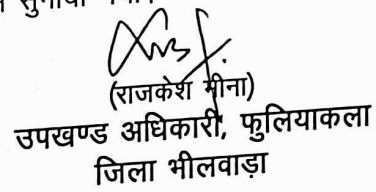 (राजकेश मीना)
उपखण्ड अधिकारी, फुलियाकला
जिला भीलवाड़ा